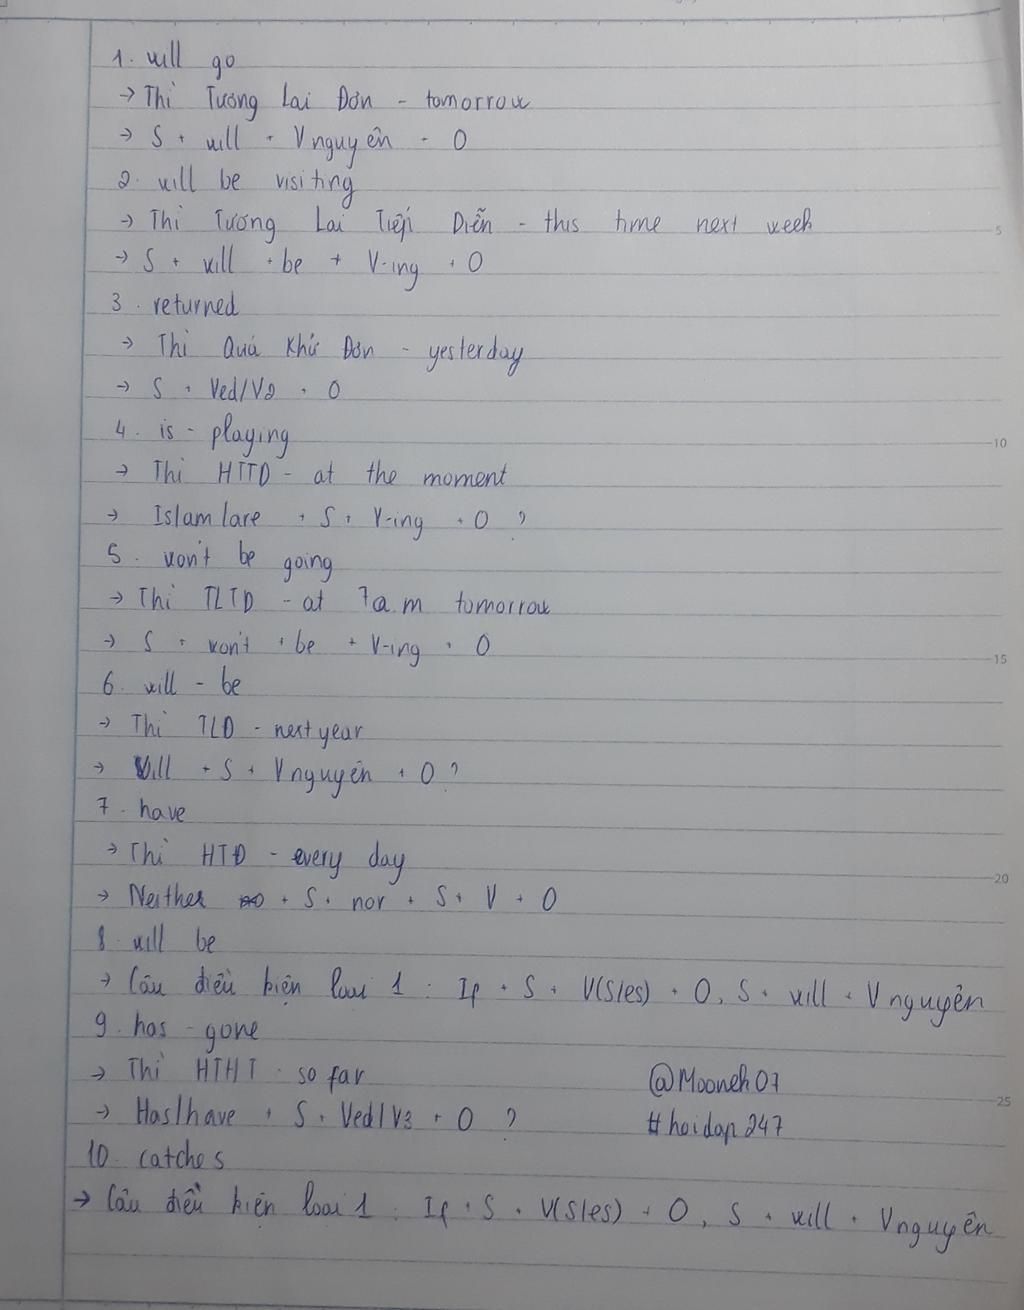 1. will go
→ Thì Tương Lai Đơn - tomorrow
→ S + will + V nguyên + O
2. will be visiting
→ Thì Tương Lai Tiếp Diễn - this time next week
5
→ S + will + be + V-ing + O
3. returned
→ Thì Quá Khứ Đơn - yesterday
→ S + Ved/V2 + O
4. is - playing
10
→ Thì HTTD - at the moment
→ Is/am/are + S + V-ing + O ?
5. won't be going
→ Thì TLTD - at 7a.m tomorrow
→ S + won't + be + V-ing + O
15
6. will - be
→ Thì TLĐ - next year
→ Will + S + V nguyên + O ?
7. have
→ Thì HTĐ - every day
20
→ Neither + S + nor + S + V + O
8. will be
→ Câu điều kiện loại 1 : If + S + V(s/es) + O, S + will + V nguyên
9. has - gone
→ Thì HTHT - so far @Mooneh07
25
→ Has/have + S + Ved/V3 + O ? #hoidap247
10. catches
→ Câu điều kiện loại 1 : If + S + V(s/es) + O, S + will + V nguyên